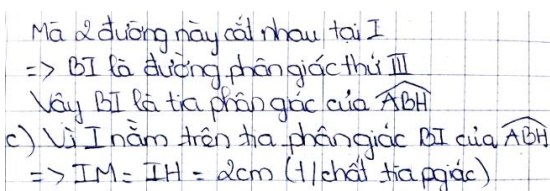 Mà 2 đường này cắt nhau tại I
=> BI là đường phân giác thứ III
Vậy BI là tia phân giác của \widehat{ABH}
c) Vì I nằm trên tia phân giác BI của \widehat{ABH}
=> IM = IH = 2cm (t/chất tia pgiác)